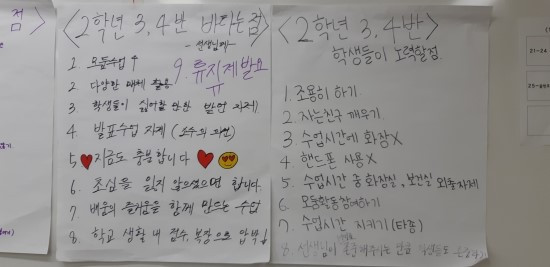 점
<2학년 3,4반 바라는점>
-선생님께-
1. 모둠수업 ↑
2. 다양한 매체 활용
3. 학생들이 싫어할 만한 발언 자제
4. 발표수업 자제 (소수의 의견)
5 ♥지금도 충분합니다 ♥
6. 초심을 잃지 않으셨으면 합니다.
7. 배움의 즐거움을 함께 만드는 수업
8. 학교 생활 내 점수, 복장으로 압박↓
9. 류지제발요
ㅠ
<2학년 3,4반>
학생들이 노력할점.
1. 조용히 하기
2. 자는친구 깨우기
3. 수업시간에 화장X
4. 핸드폰 사용X
5. 수업시간 중 화장실, 보건실 외출자제
6. 모둠활동참여하기
7. 수업시간 지키기 (타종)
8. 선생님이
21-24